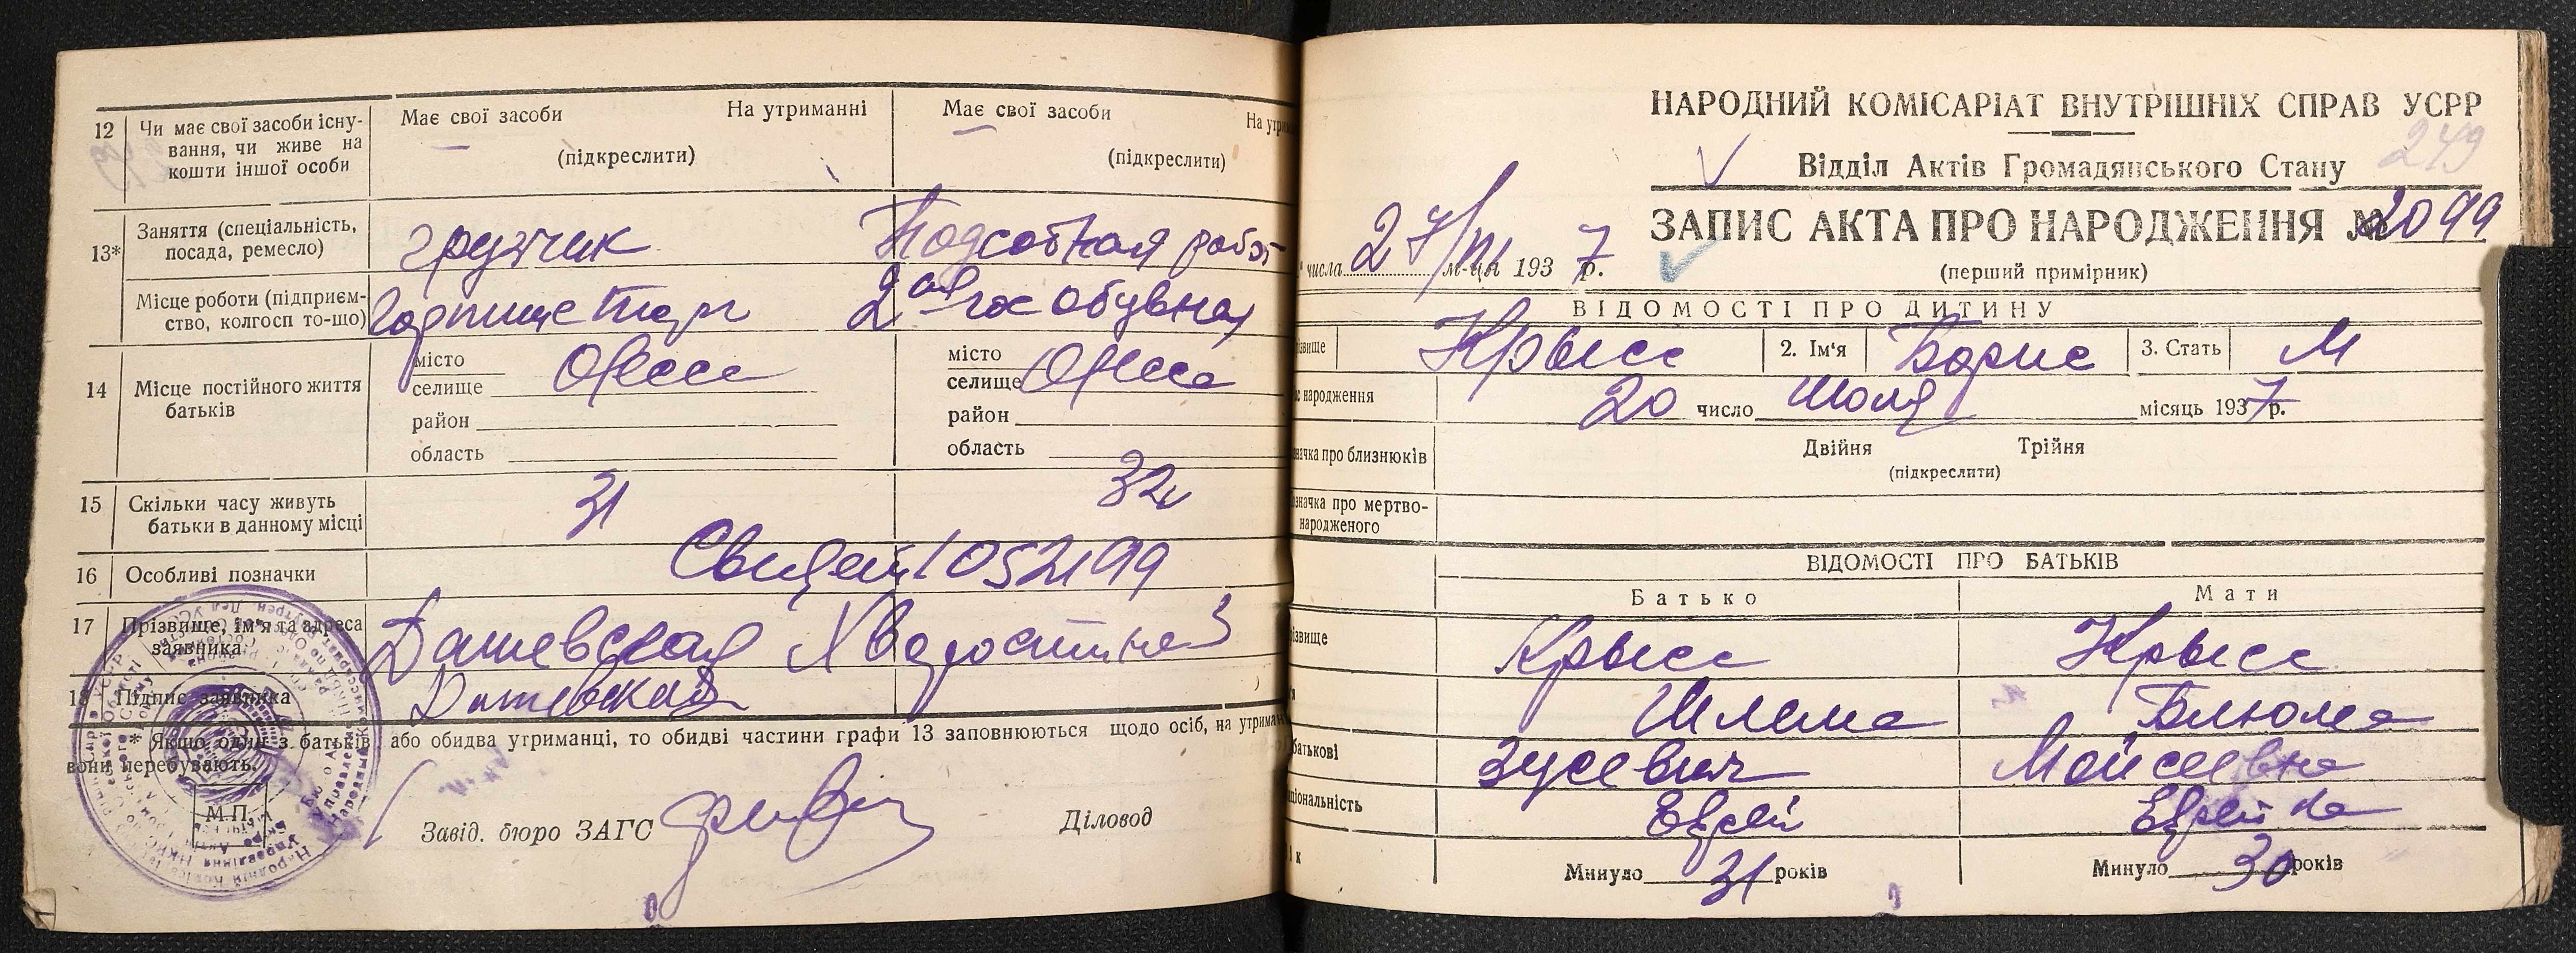 12 Чи має свої засоби існу-
вання, чи живе на
кошти іншої особи
Має свої засоби На утриманні
(підкреслити)
Має свої засоби
(підкреслити)
13* Заняття (спеціальність,
посада, ремесло)
грузчик
Подсобная работ
Місце роботи (підприєм-
ство, колгосп то-що)
Горпищеторг
2ая гос обувная
14 Місце постійного життя
батьків
місто
селище Одесса
район
область
місто
селище Одесса
район
область
15 Скільки часу живуть
батьки в данному місці
31
32
16 Особливі позначки
Свидет 1052199
17 Прізвище, ім'я та адреса
заявника
Дашевская
18 Підпис заявника
Дашевская
* Якщо один з батьків, або обидва утриманці, то обидві частини графи 13 заповнюються щодо осіб, на
вони перебувають.
М.П.
Завід. бюро ЗАГС
Діловод
НАРОДНИЙ КОМІСАРІАТ ВНУТРІШНІХ СПРАВ УСРР
249
Відділ Актів Громадянського Стану
ЗАПИС АКТА ПРО НАРОДЖЕННЯ № 2099
числа 27/VII м-ця 1937 р.
(перший примірник)
ВІДОМОСТІ ПРО ДИТИНУ
Крысс 2. Ім'я Борис 3. Стать М
народження 20 число Июля місяць 1937 р.
про близнюків Двійня Трійня
(підкреслити)
про мертво-
народженого
ВІДОМОСТІ ПРО БАТЬКІВ
Батько Мати
Крысс Крысс
Шлема Блюма
батькові Зусевич Мойсеевна
Еврей Еврейка
Минуло 31 років Минуло 30 років